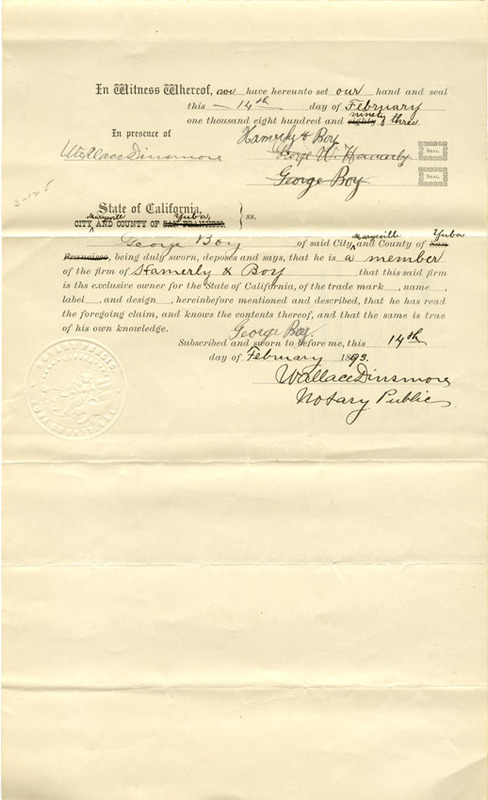 In Witness Whereof, we have hereunto set our hand and seal
this 14th day of February
one thousand eight hundred and eighty ninety three
In presence of Hamerly & Boy
Wallace Dinsmore George W. Hamerly Seal.
George Boy Seal.
3-125
State of California,
CITY Marysville AND COUNTY OF SAN FRANCISCO. Yuba, ss.
George Boy of said City Marysville and County of San Yuba
Francisco, being duly sworn, deposes and says, that he is a member
of the firm of Hamerly & Boy that this said firm
is ths exclusive owner for the State of California, of the trade mark, name
label and design, hereinbefore mentioned and described, that he has read
the foregoing claim, and knows the contents thereof, and that the same is true
of his own knowledge.
George Boy.
Subscribed and sworn to before me, this 14th
day of February 1893.
Wallace Dinsmore
Notary Public
NOTARY PUBLIC